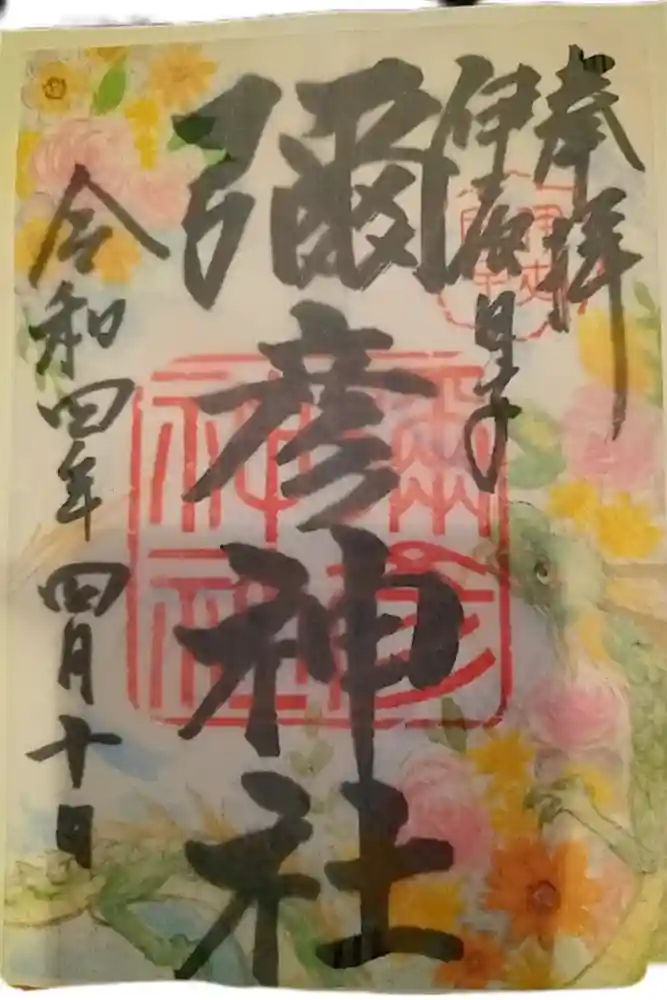 奉拝
伊夜日子
彌彦神社
令和四年四月十日
彌彦
神社